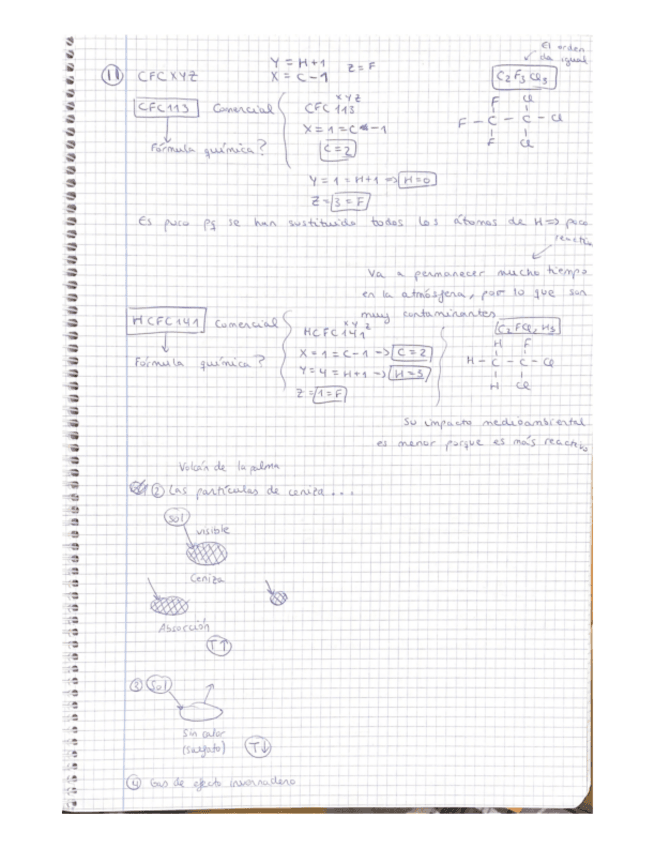 11 CFCXYZ
Y = H+1
X = C-1
Z = F
El orden
da igual
C2F3Cl3
CFC113 Comercial
Fórmula química?
XYZ
CFC 113
X = 1 = C-1
C = 2
Y = 1 = H+1 => H=0
Z = 3 = F
F Cl
F - C - C - Cl
F Cl
Es poco pq se han sustituido todos los átomos de H => poco
reactivo
Va a permanecer mucho tiempo
en la atmósfera, por lo que son
muy contaminantes
HCFC141 Comercial
Fórmula química?
XYZ
HCFC 141
X = 1 = C-1 => C = 2
Y = 4 = H+1 => H = 3
Z = 1 = F
C2FCl2H3
H F
H - C - C - Cl
H Cl
Su impacto medioambiental
es menor porque es más reactivo
Volcán de la palma
2 Las partículas de ceniza...
Sol
visible
Ceniza
Absorción
T↑
3 Sol
Sin color
(sulfato)
T↓
4 Gas de efecto invernadero